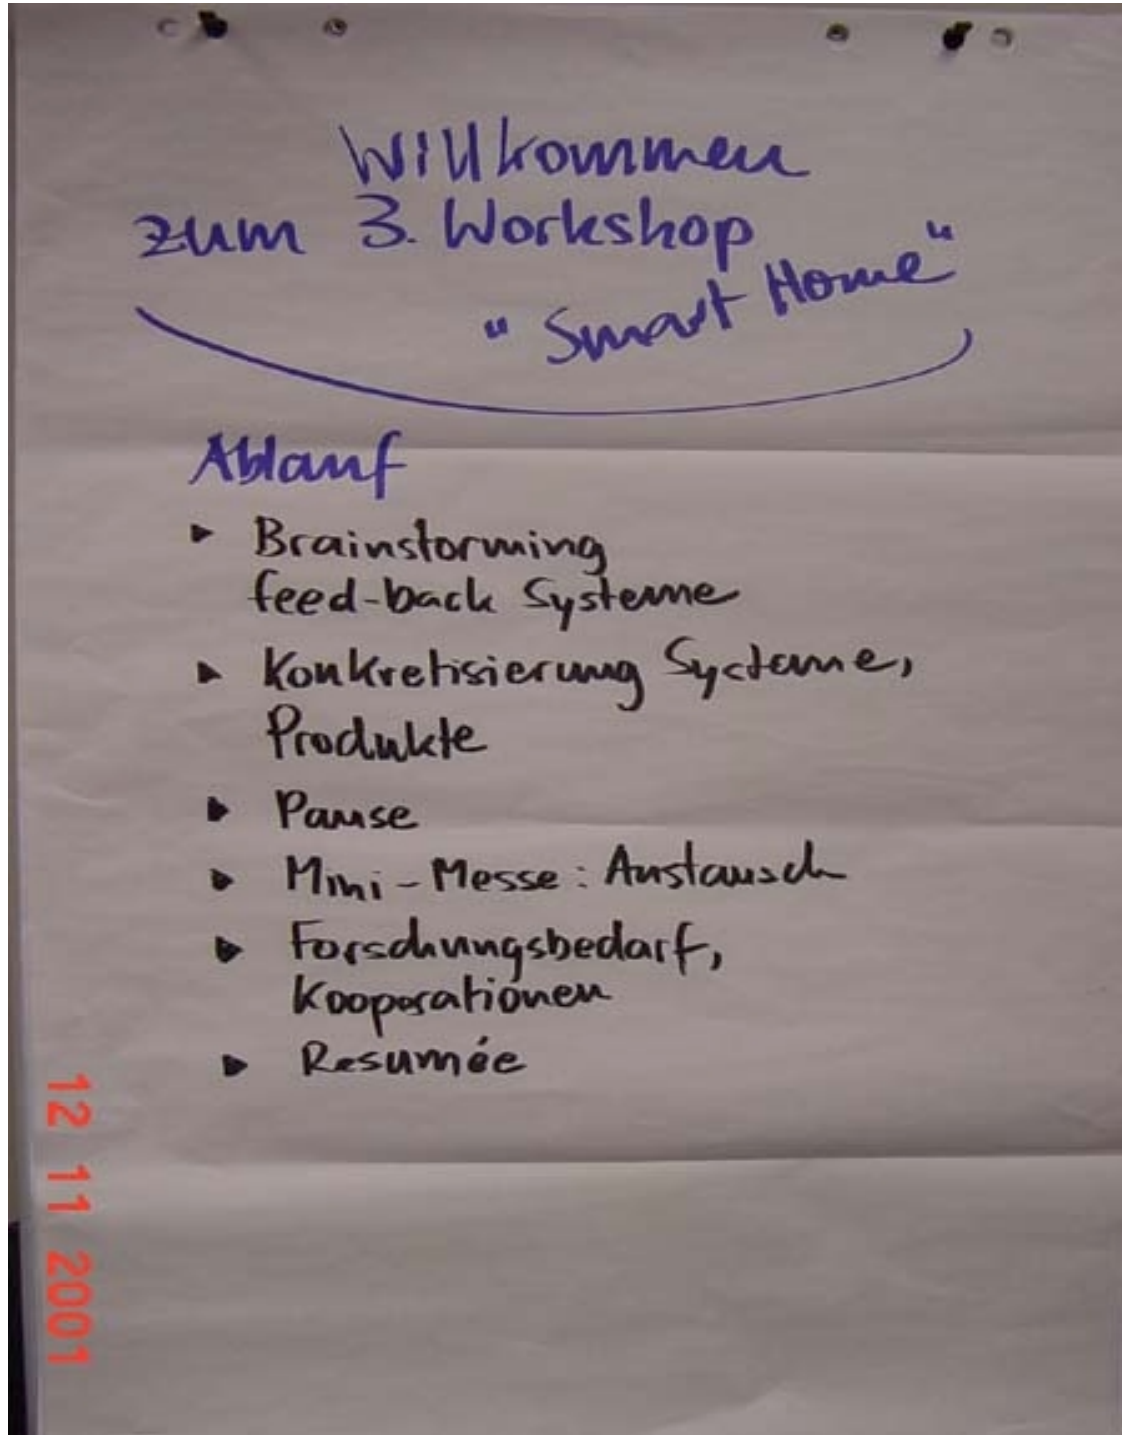 Willkommen
zum 3. Workshop
"Smart Home"
Ablauf
▸ Brainstorming
feed-back Systeme
▸ Konkretisierung Systeme,
Produkte
▸ Pause
▸ Mini-Messe: Austausch
▸ Forschungsbedarf,
Kooperationen
▸ Resumée
12 11 2001